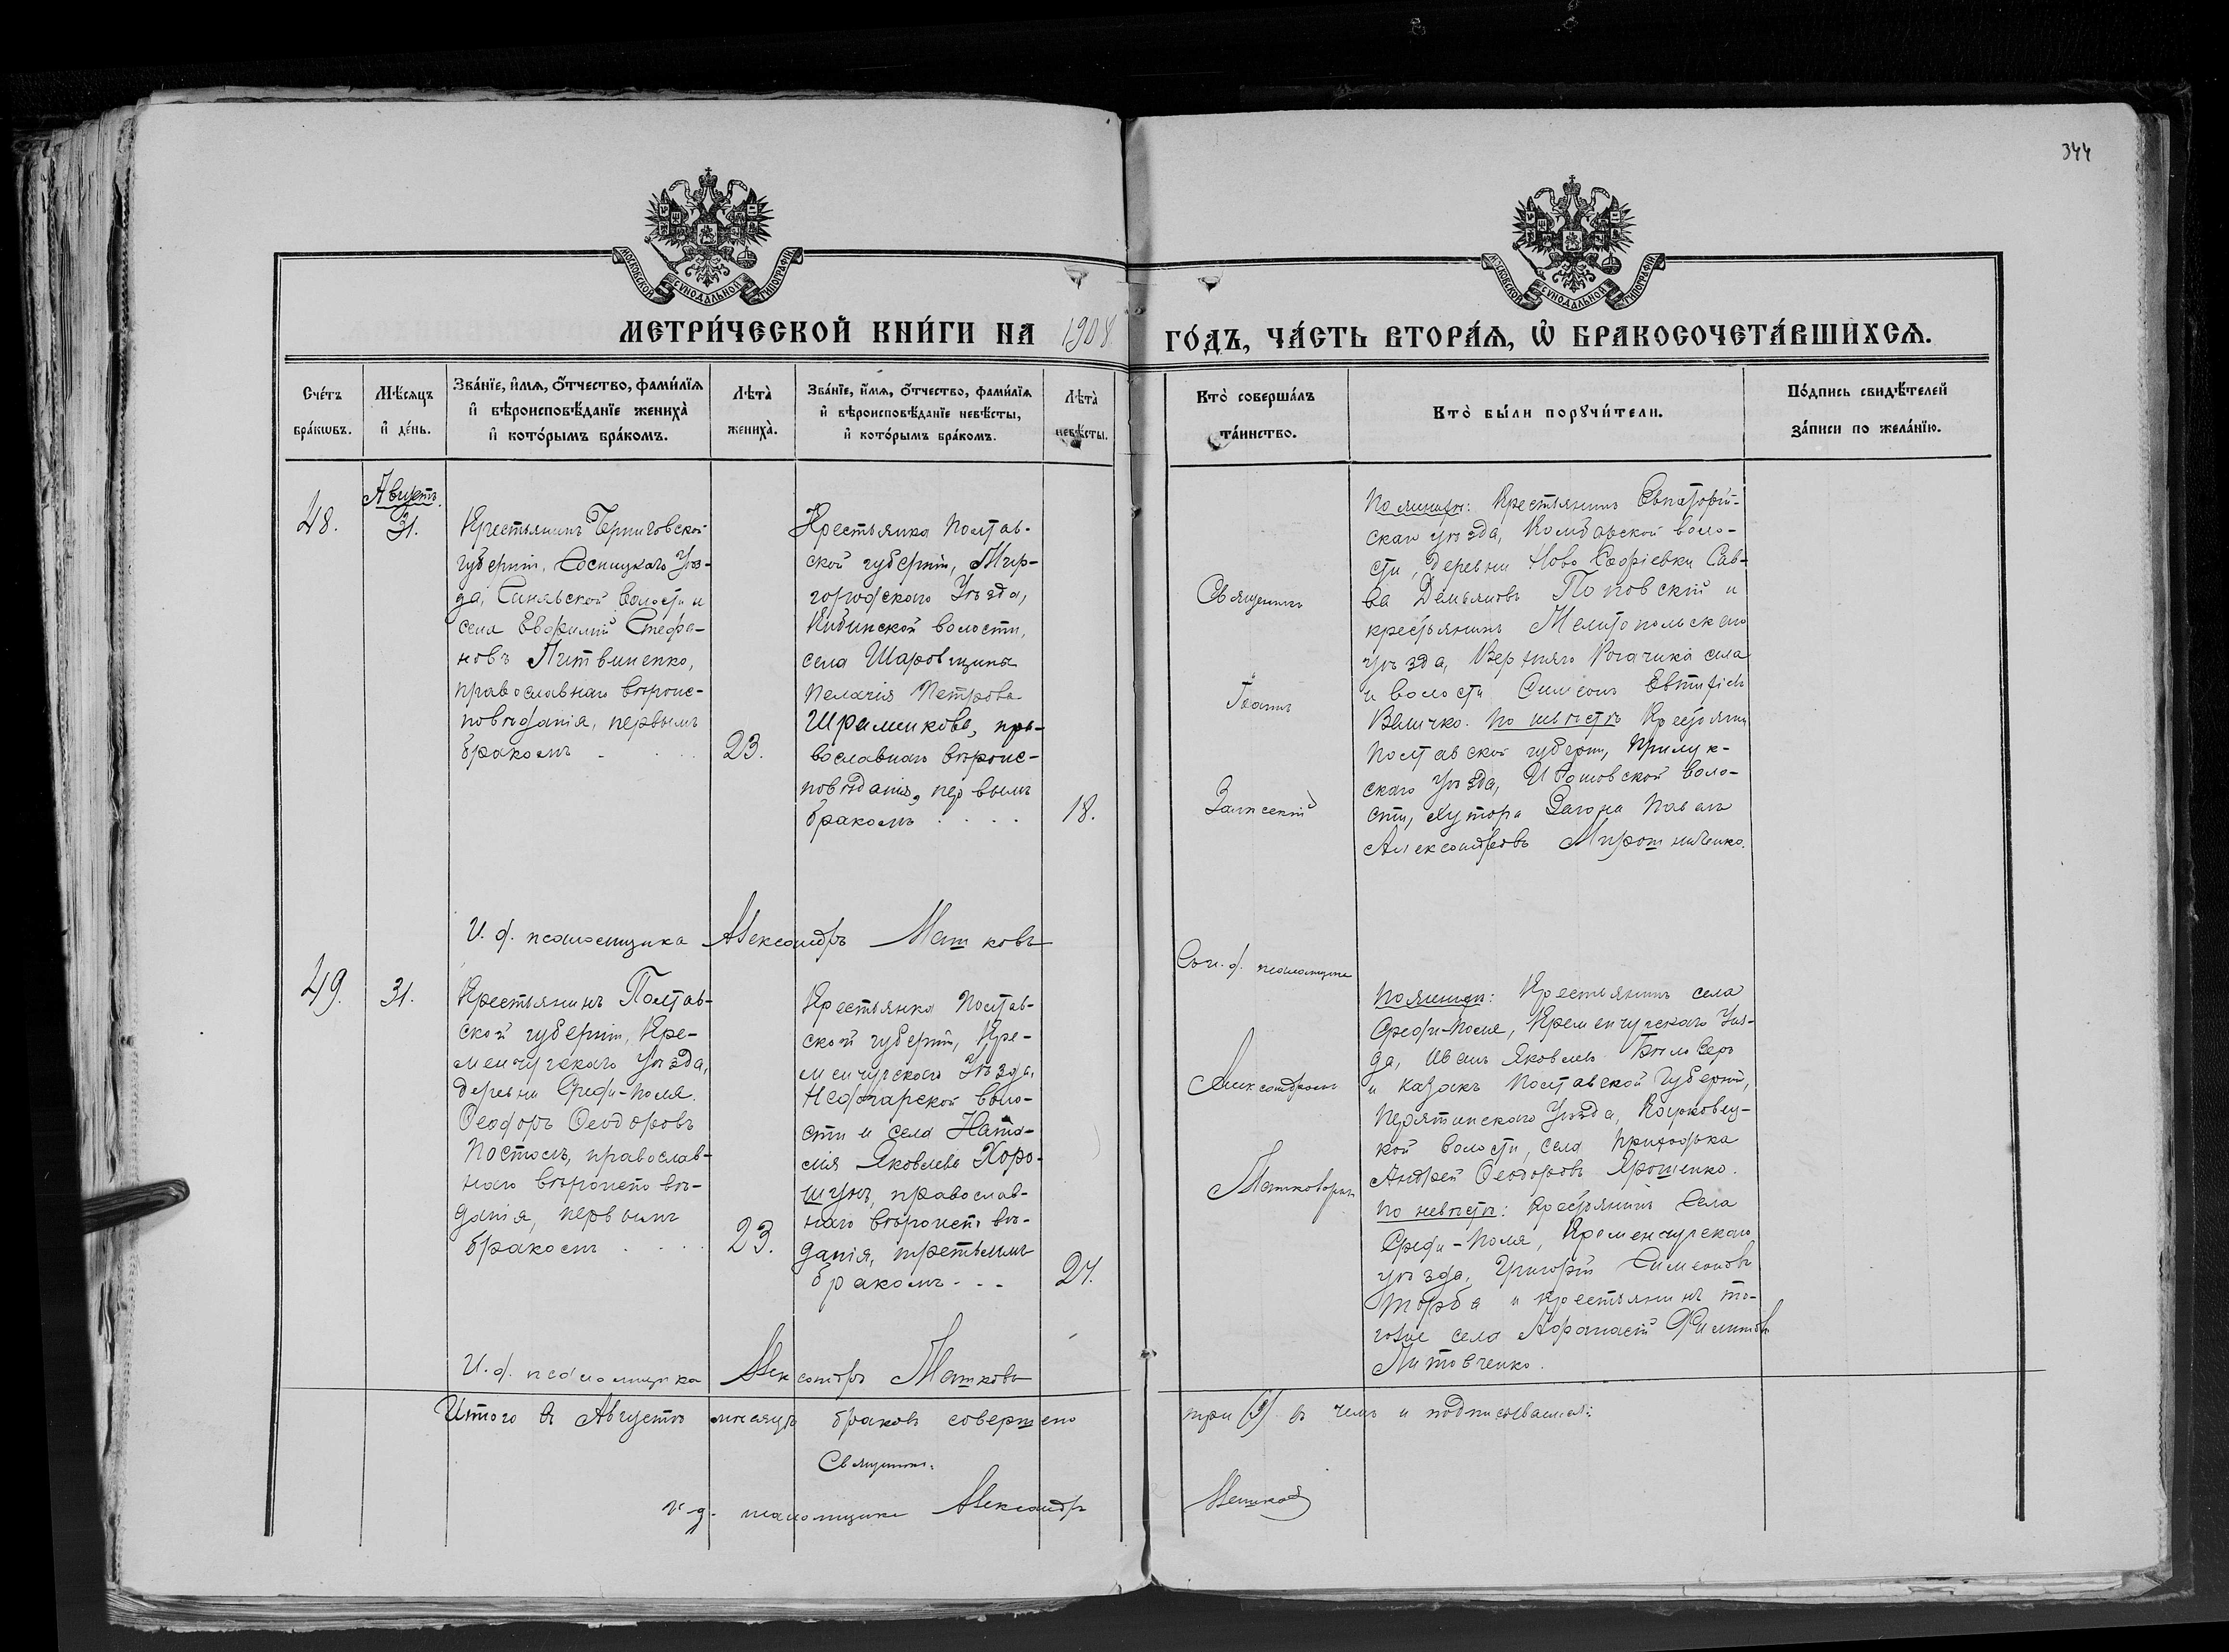 344
МОСКОВСКОЙ СѴНОДАЛЬНОЙ ТИПОГРАФІИ
МОСКОВСКОЙ СѴНОДАЛЬНОЙ ТИПОГРАФІИ
МЕТРИ́ЧЕСКОЙ КНИ́ГИ НА 1908 ГО́ДЪ, ЧА́СТЬ ВТОРА́Ѧ, Ѡ БРАКОСОЧЕТА́ВШИХСѦ.
Сче́тъ
бра́кѡвъ.
Мѣ́сѧцъ
и де́нь.
Зва́нїе, и́мѧ, о́тчество, фами́лїѧ
и вѣроисповѣ́данїе жениха̀
и кото́рымъ бра́комъ.
Лѣта̀
жениха̀.
Зва́нїе, и́мѧ, о́тчество, фами́лїѧ
и вѣроисповѣ́данїе невѣ́сты,
и кото́рымъ бра́комъ.
Лѣта̀
невѣ́сты.
Кто̀ соверша́лъ
та́инство.
Кто̀ бы́ли порꙋчи́тели.
По́дпись свидѣ́телей
за́писи по жела́нїю.
48.
Августъ.
31.
Крестьянинъ Черниговской
губерніи, Сосницкаго Уѣз-
да, Синявской волости и
села Евфимій Стефа-
новъ Литвиненко,
православнаго вѣроис-
повѣданія, первымъ
бракомъ
23.
Крестьянка Полтав-
ской губерніи, Мир-
городскаго Уѣзда,
Кибинской волости,
села Шаровщина
Пелагія Петрова
Шраменкова, пра-
вославнаго вѣроис-
повѣданія, первымъ
бракомъ . . . .
18.
Священникъ
Іоаннъ
Залѣсскій
По женихѣ: Крестьянинъ Евпаторій-
скаго уѣзда, воло-
сти, деревни Ново Софіевки Сав-
ва Демьяновъ Поповскій и
крестьянинъ Мелитопольскаго
уѣзда, Верхняго Рогачика села
и волости Симеонъ
Величко. По невѣстѣ Крестьянинъ
Полтавской губерніи, Прилук-
скаго Уѣзда, воло-
сти, хутора Загона Павелъ
Александровъ Мирошниченко.
И. д. псаломщика Александръ Машковъ
Съ и. д. псаломщика
49.
31.
Крестьянинъ Полтав-
ской губерніи, Кре-
менчугскаго уѣзда,
деревни Среди-Поля.
Ѳеодоръ Ѳеодоровъ
Постолъ, православ-
наго вѣроисповѣ-
данія, первымъ
бракомъ . . .
23.
Крестьянка Полтав-
ской губерніи, Кре-
менчугскаго Уѣзда,
Недогарской воло-
сти и села Ната-
лія Яковлева Хоро-
шунъ, православ-
наго вѣроисповѣ-
данія, третьимъ
бракомъ - - -
27.
Александромъ
Машковымъ
По женихѣ: Крестьянинъ села
Среди-Поле, Кременчугскаго Уѣз-
да, Иванъ Яковлевъ
и казакъ Полтавской Губерніи,
Пирятинскаго Уѣзда,
кой волости, села Приходька
Андрей Ѳеодоровъ Ярошенко.
По невѣстѣ: крестьянинъ Села
Среди-Поля, Кременчугскаго
уѣзда, Григорій Симеоновъ
Торба и крестьянинъ то-
го же села Аѳанасій Филиповъ
Литовченко.
И. д. псаломщика Александръ Машковъ
Итого въ Августѣ мѣсяцѣ браковъ совершено три (3) въ чемъ и подписываемся:
Священникъ
и. д. псаломщика Александръ Машковъ